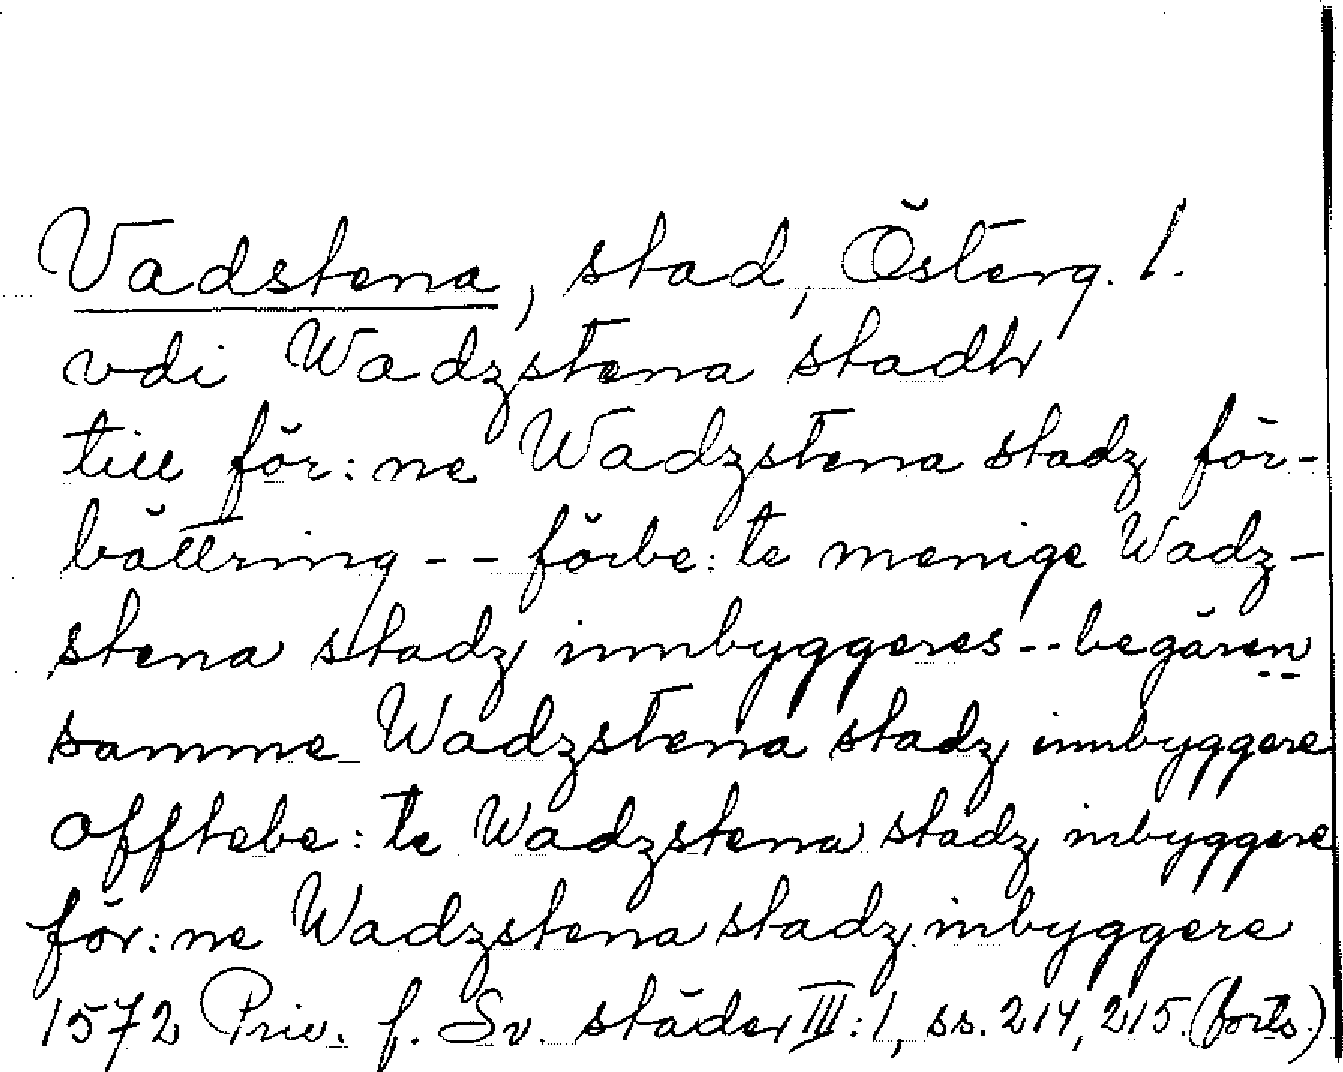 Vadstena, stad, Österg. l.
vdi Wadzstena stadh
till för:ne Wadzstena stadz för-
bättring -- förbe:te menige Wadz-
stena stadz innbyggeres -- begären
samme Wadzstena stadz innbyggere
offtebe:te Wadzstena stadz inbyggere
för:ne Wadzstena stadz inbyggere
1572 Priv. f. Sv. städer III:1, ss. 214, 215. (forts.)